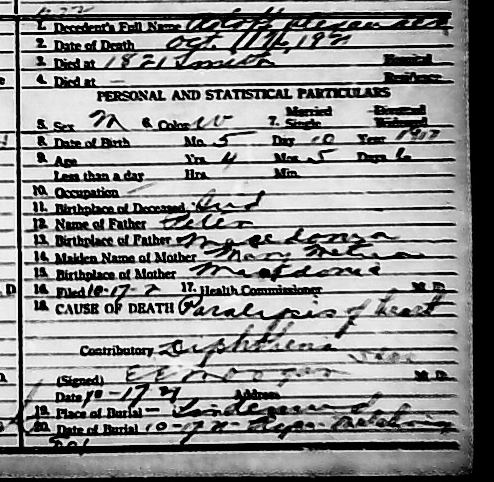 1. Decedent's Full Name
2. Date of Death Oct. 17th, 192
3. Died at 1821 Smith Hospital
4. Died at — Residence
PERSONAL AND STATISTICAL PARTICULARS
Married Divorced
5. Sex M 6. Color W 7. Single Widowed
8. Date of Birth Mo. 5 Day 10 Year 1917
9. Age Yrs. 4 Mos. 5 Days 6
Less than a day Hrs. Min.
10. Occupation —
11. Birthplace of Deceased Ind
12. Name of Father Peter
13. Birthplace of Father Macedonia
14. Maiden Name of Mother Mary
15. Birthplace of Mother Macedonia
16. Filed 10-17-2 17. Health Commissioner M. D.
18. CAUSE OF DEATH Paralysis of heart
Contributory Diphtheria
(Signed) M. D.
Date 10-17-21 Address
19. Place of Burial — Lindenwood
20. Date of Burial 10-17-21